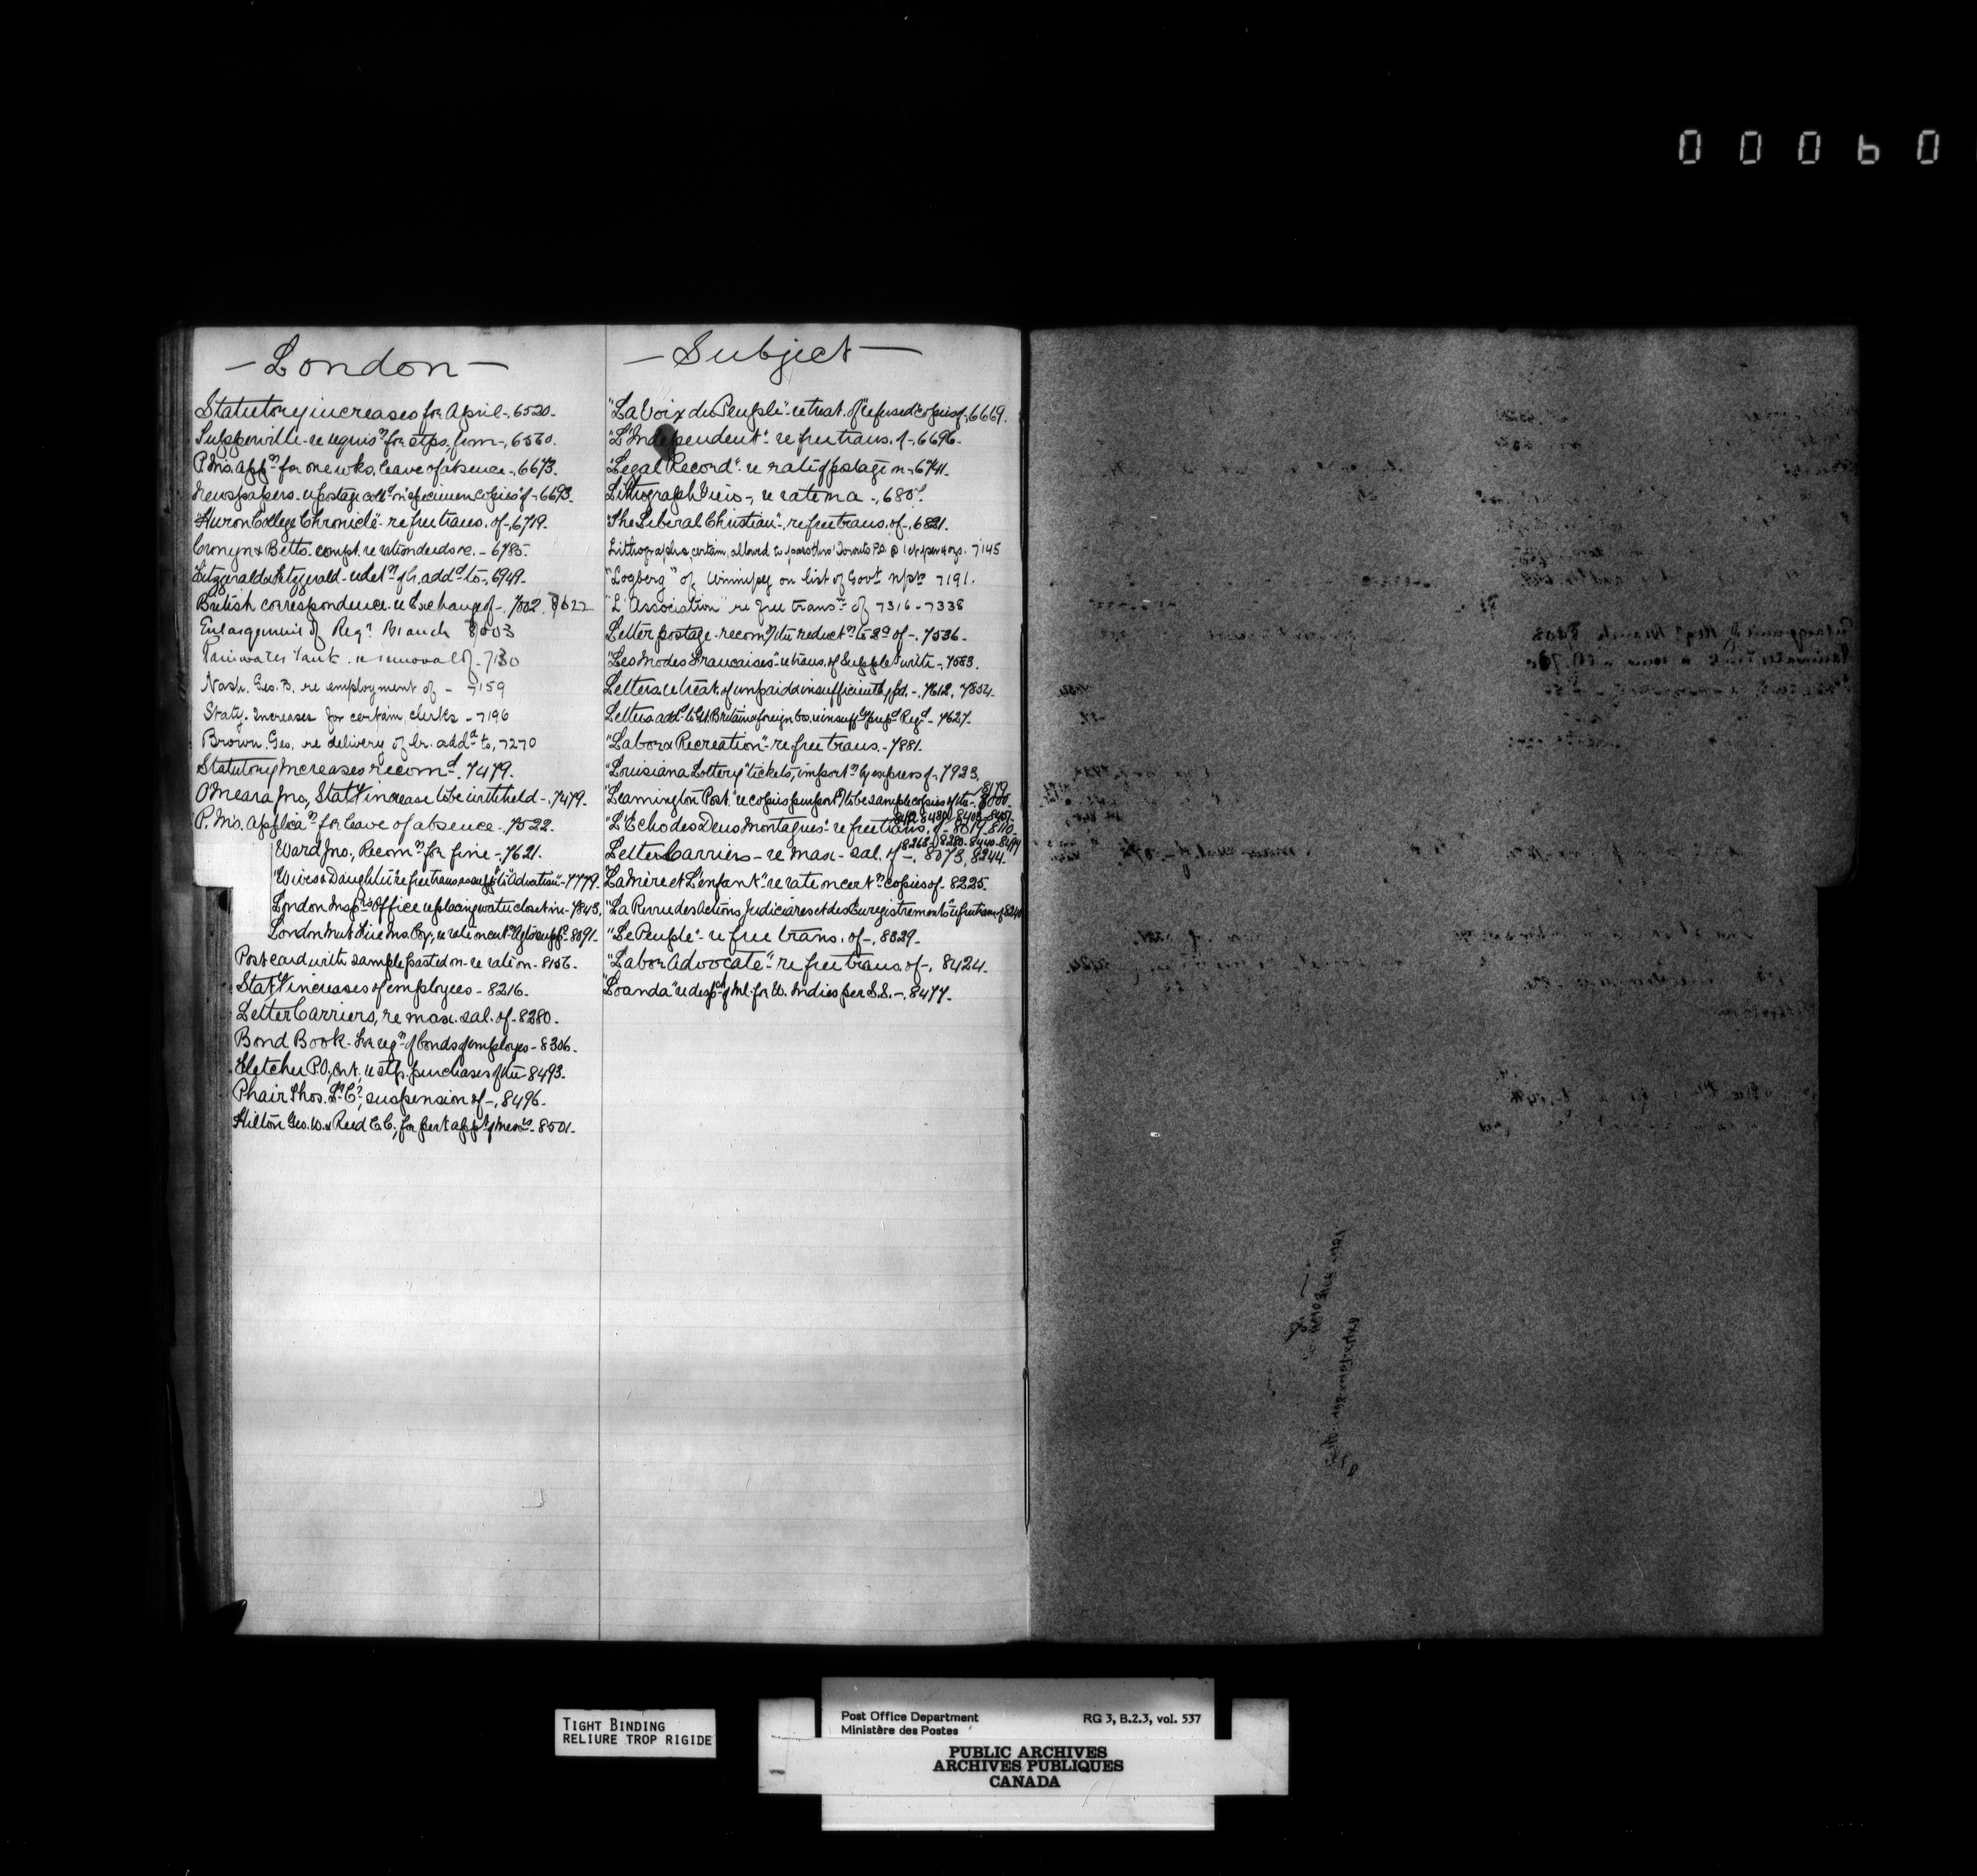 00060
— London —
Statutory increases for April -, 6520.
re requisn for stps. from -, 6560.
P.M's. appn for one wks. leave of absence -, 6673.
Newspapers - re postage colld on "specimen copies" of - 6693.
"Huron College Chronicle" - re free trans. of -, 6719.
Cronyn & Betts. compt. re rate on deeds &c. - 6785.
Fitzgerald & Fitzgerald - re detn of lr. addd to -, 6949.
British correspondence. re Exchange of -. 7002. 8622
Enlargement of Regn Branch 8003
Rainwater Tank. re removal of - 7130
Nash. Geo. B. re employment of - 7159
Staty. Increases for certain clerks - 7196
Brown. Geo. re delivery of lr. addd to, 7270
Statutory Increases recomd. 7479.
O'Meara Jno., Staty increase to be withheld -. 7479.
P. M's. applican for leave of absence -. 7522.
Ward Jno., Recomn for fine -. 7621.
"Wives & Daughters" re free trans. as suppt to "Advertiser" - 7779.
London Insprs Office re placing water closet in - 7843.
London Mut. Fire Ins. Coy., re rate on - 8091.
Post card with sample pasted on - re rate on - 8156.
Staty increases of employees - 8216.
Letter Carriers, re max. sal. of - 8280.
Bond Book - for regn of bonds of employes - 8306.
Fletcher P.O., Ont., re stp. purchases of the - 8493.
Phair Thos. Lr Cr, suspension of -, 8496.
Hilton Geo. W. & Reed C.C., for pert appt of - 8501.
— Subject —
"La Voix du Peuple" - re treat. of "refused" copies of -, 6669.
"L'Independent" - re free trans. of -, 6696.
"Legal Record" - re rate of postage on - 6741.
Lithograph Views -, re rate on a -,
"The Liberal Christian" -, re free trans. of -, 6821.
Lithographs, certain, allowed to pass thro' Toronto P.O. @ 1 ct. per 4 ozs. 7145
"Logberg" of Winnipeg on list of Govt. nprs 7191.
"L'Association" re free transn of 7316 - 7338
Letter postage - recomg the reductn to 2c of -. 7536.
"Les Modes Francaises" - re trans. of Supplet with -, 7583.
Letters re treat. of unpaid & insufficiently pd. -, 7612, 7854.
Letters addd to Gt. Britain & foreign Cos. re insuffly prepd Regd - 7627.
"Labor & Recreation" - re free trans. - 7881.
"Louisiana Lottery" tickets, importn by express of -, 7923.
"Leamington Post" re copies purportg to be sample copies of the -. 8000. 8179
"L'Echo des Deux Montagnes" - re free trans. of - 8019. 8110.
Letter Carriers - re max. sal. of -. 8073, 8244.
"La Mère et L'enfant" re rate on certn copies of - 8225.
"La Revue des Actions Judiciares et des Enregistrements" re free trans. of
"Le Peuple" - re free trans. of -. 8329.
"Labor Advocate" - re free trans. of -. 8424.
"Loanda" re despch of Ml. for W. Indies per S.S. -. 8477.
TIGHT BINDING
RELIURE TROP RIGIDE
Post Office Department
Ministère des Postes
RG 3, B.2.3, vol. 537
PUBLIC ARCHIVES
ARCHIVES PUBLIQUES
CANADA